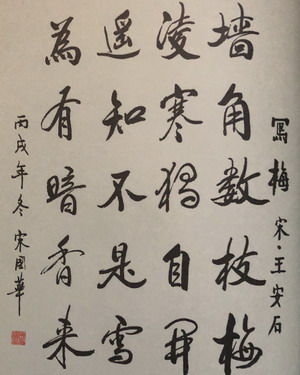 寫梅 宋·王安石
墙角数枝梅
凌寒独自開
遥知不是雪
為有暗香来
丙戌年冬 宋国華